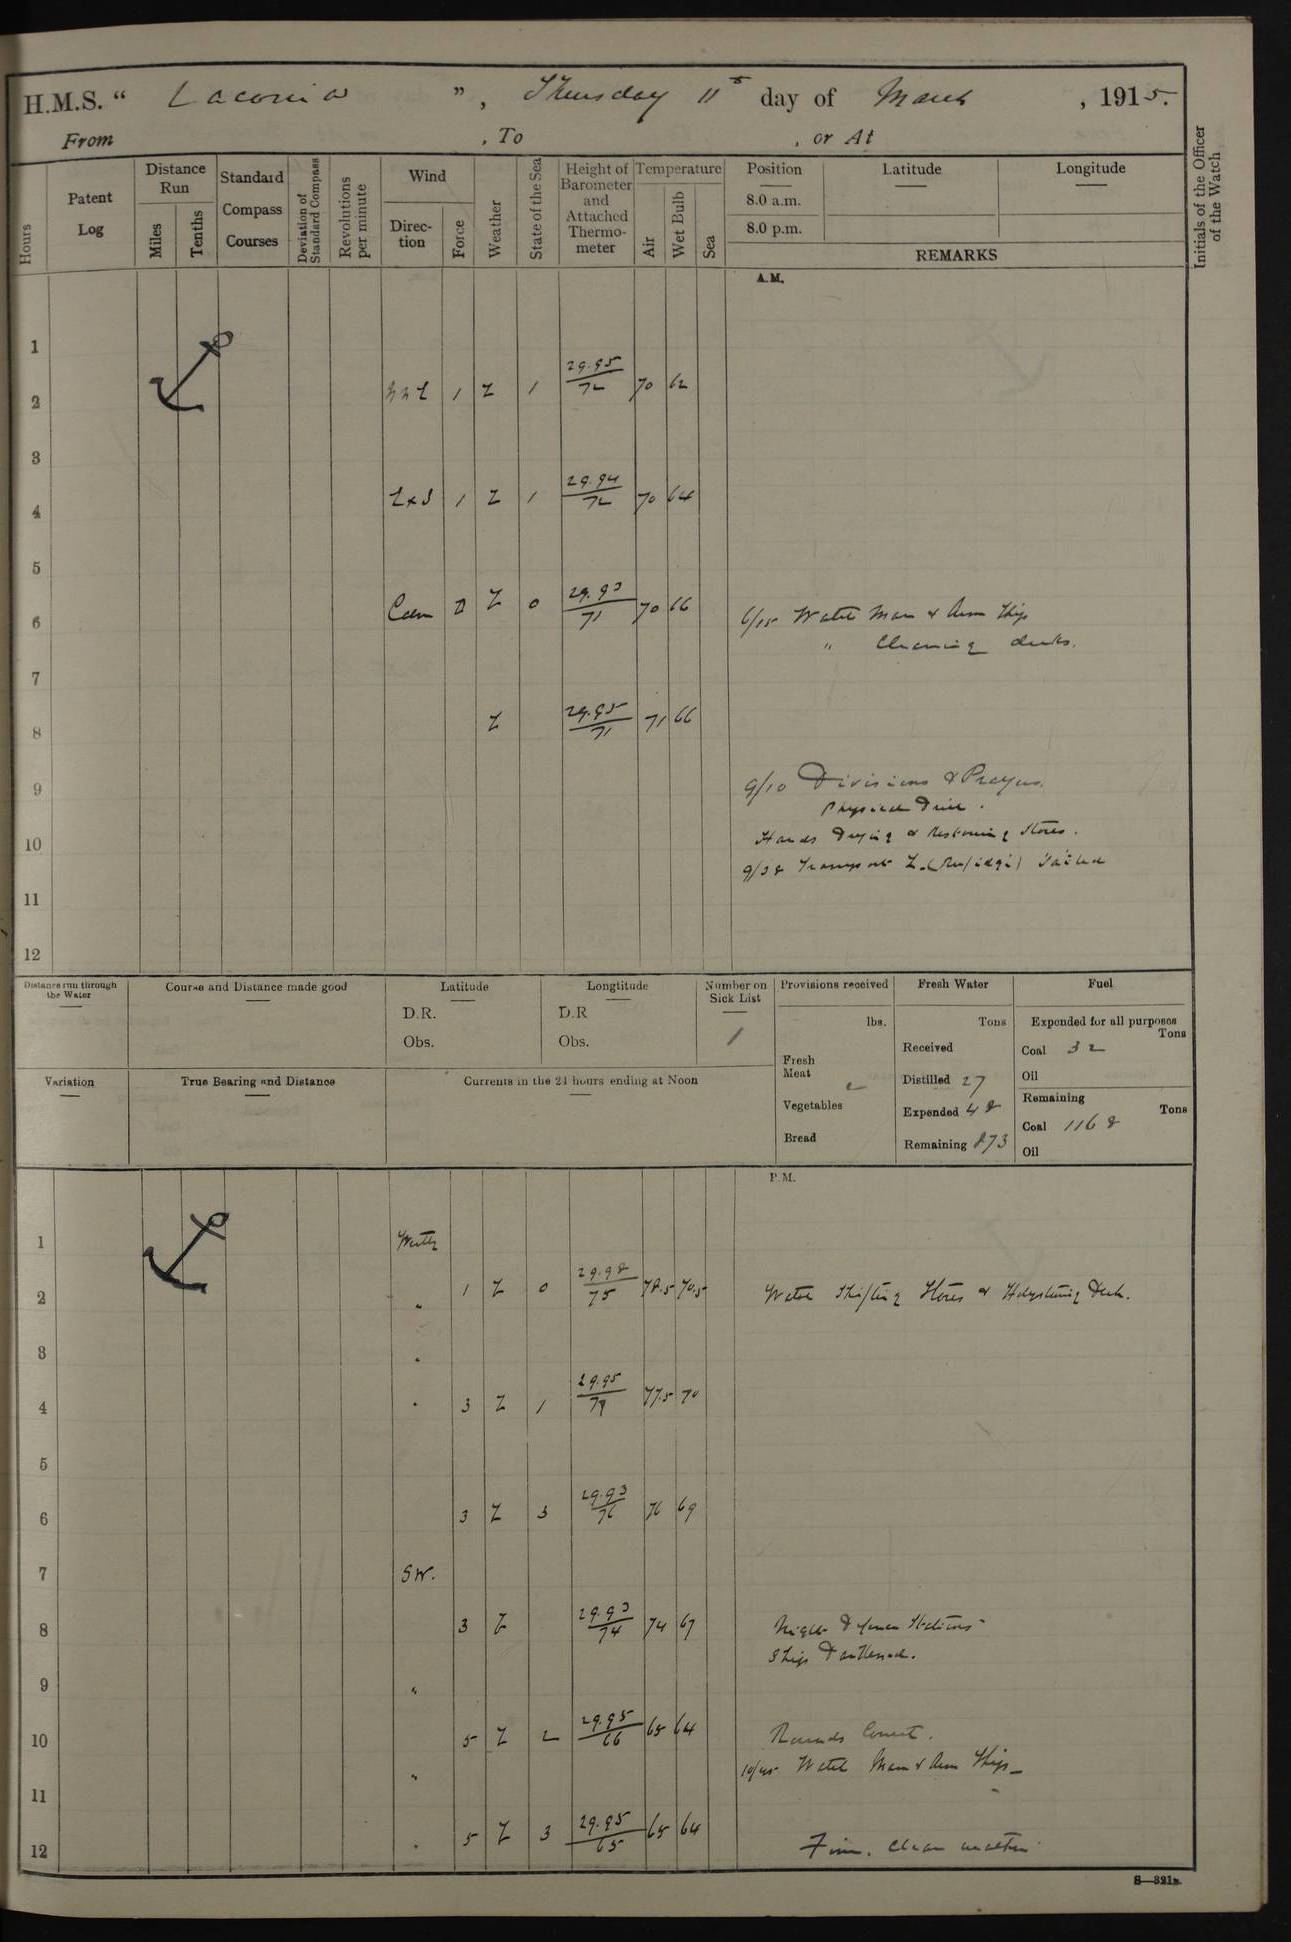 H.M.S. “ Laconia ”, Thursday 11th day of March, 1915.
From , To , or At
Hours
Patent Log
Distance Run
Miles
Tenths
Standard Compass Courses
Deviation of Standard Compass
Revolutions per minute
Wind
Direction
Force
Weather
State of the Sea
Height of Barometer and Attached Thermometer
Temperature
Air
Wet Bulb
Sea
Position
8.0 a.m.
8.0 p.m.
Latitude
Longitude
REMARKS
Initials of the Officer of the Watch
A.M.
1
2 1 Z 1 29.95/72 70 62
3
4 ExS 1 Z 1 29.94/72 70 64
5
6 Calm 0 Z 0 29.93/71 70 66 6/15 Watch Man & Arm Ship
" Cleaning decks.
7
8 Z 29.95/71 71 66
9 9/10 Divisions & Prayers.
Physical Drill.
10 Hands Drying & Restowing Stores.
Transport Sailed
11
12
Distance run through the Water
Course and Distance made good
Latitude
D.R.
Obs.
Longtitude
D.R
Obs.
Number on Sick List
1
Provisions received
lbs.
Fresh Meat
Vegetables
Bread
Fresh Water
Tons
Received
Distilled 27
Expended 48
Remaining 873
Fuel
Expended for all purposes
Tons
Coal 32
Oil
Remaining
Tons
Coal 1168
Oil
Variation
True Bearing and Distance
Currents in the 24 hours ending at Noon
P.M.
1 Westly
2 " 1 Z 0 29.98/75 78.5 70.5 Watch Shifting Stores & Holystoning Deck.
3 "
4 " 3 Z 1 29.95/79 77.5 70
5
6 3 Z 3 29.93/76 76 69
7 SW.
8 3 Z 29.93/74 74 67 Night Defence Stations
Ship Darkened.
9 "
10 5 Z 2 29.95/66 65 64 Rounds Correct.
" 10/45 Watch Man & Arm Ship
11
12 " 5 Z 3 29.95/65 65 64 Fine, clear weather
S—321B.